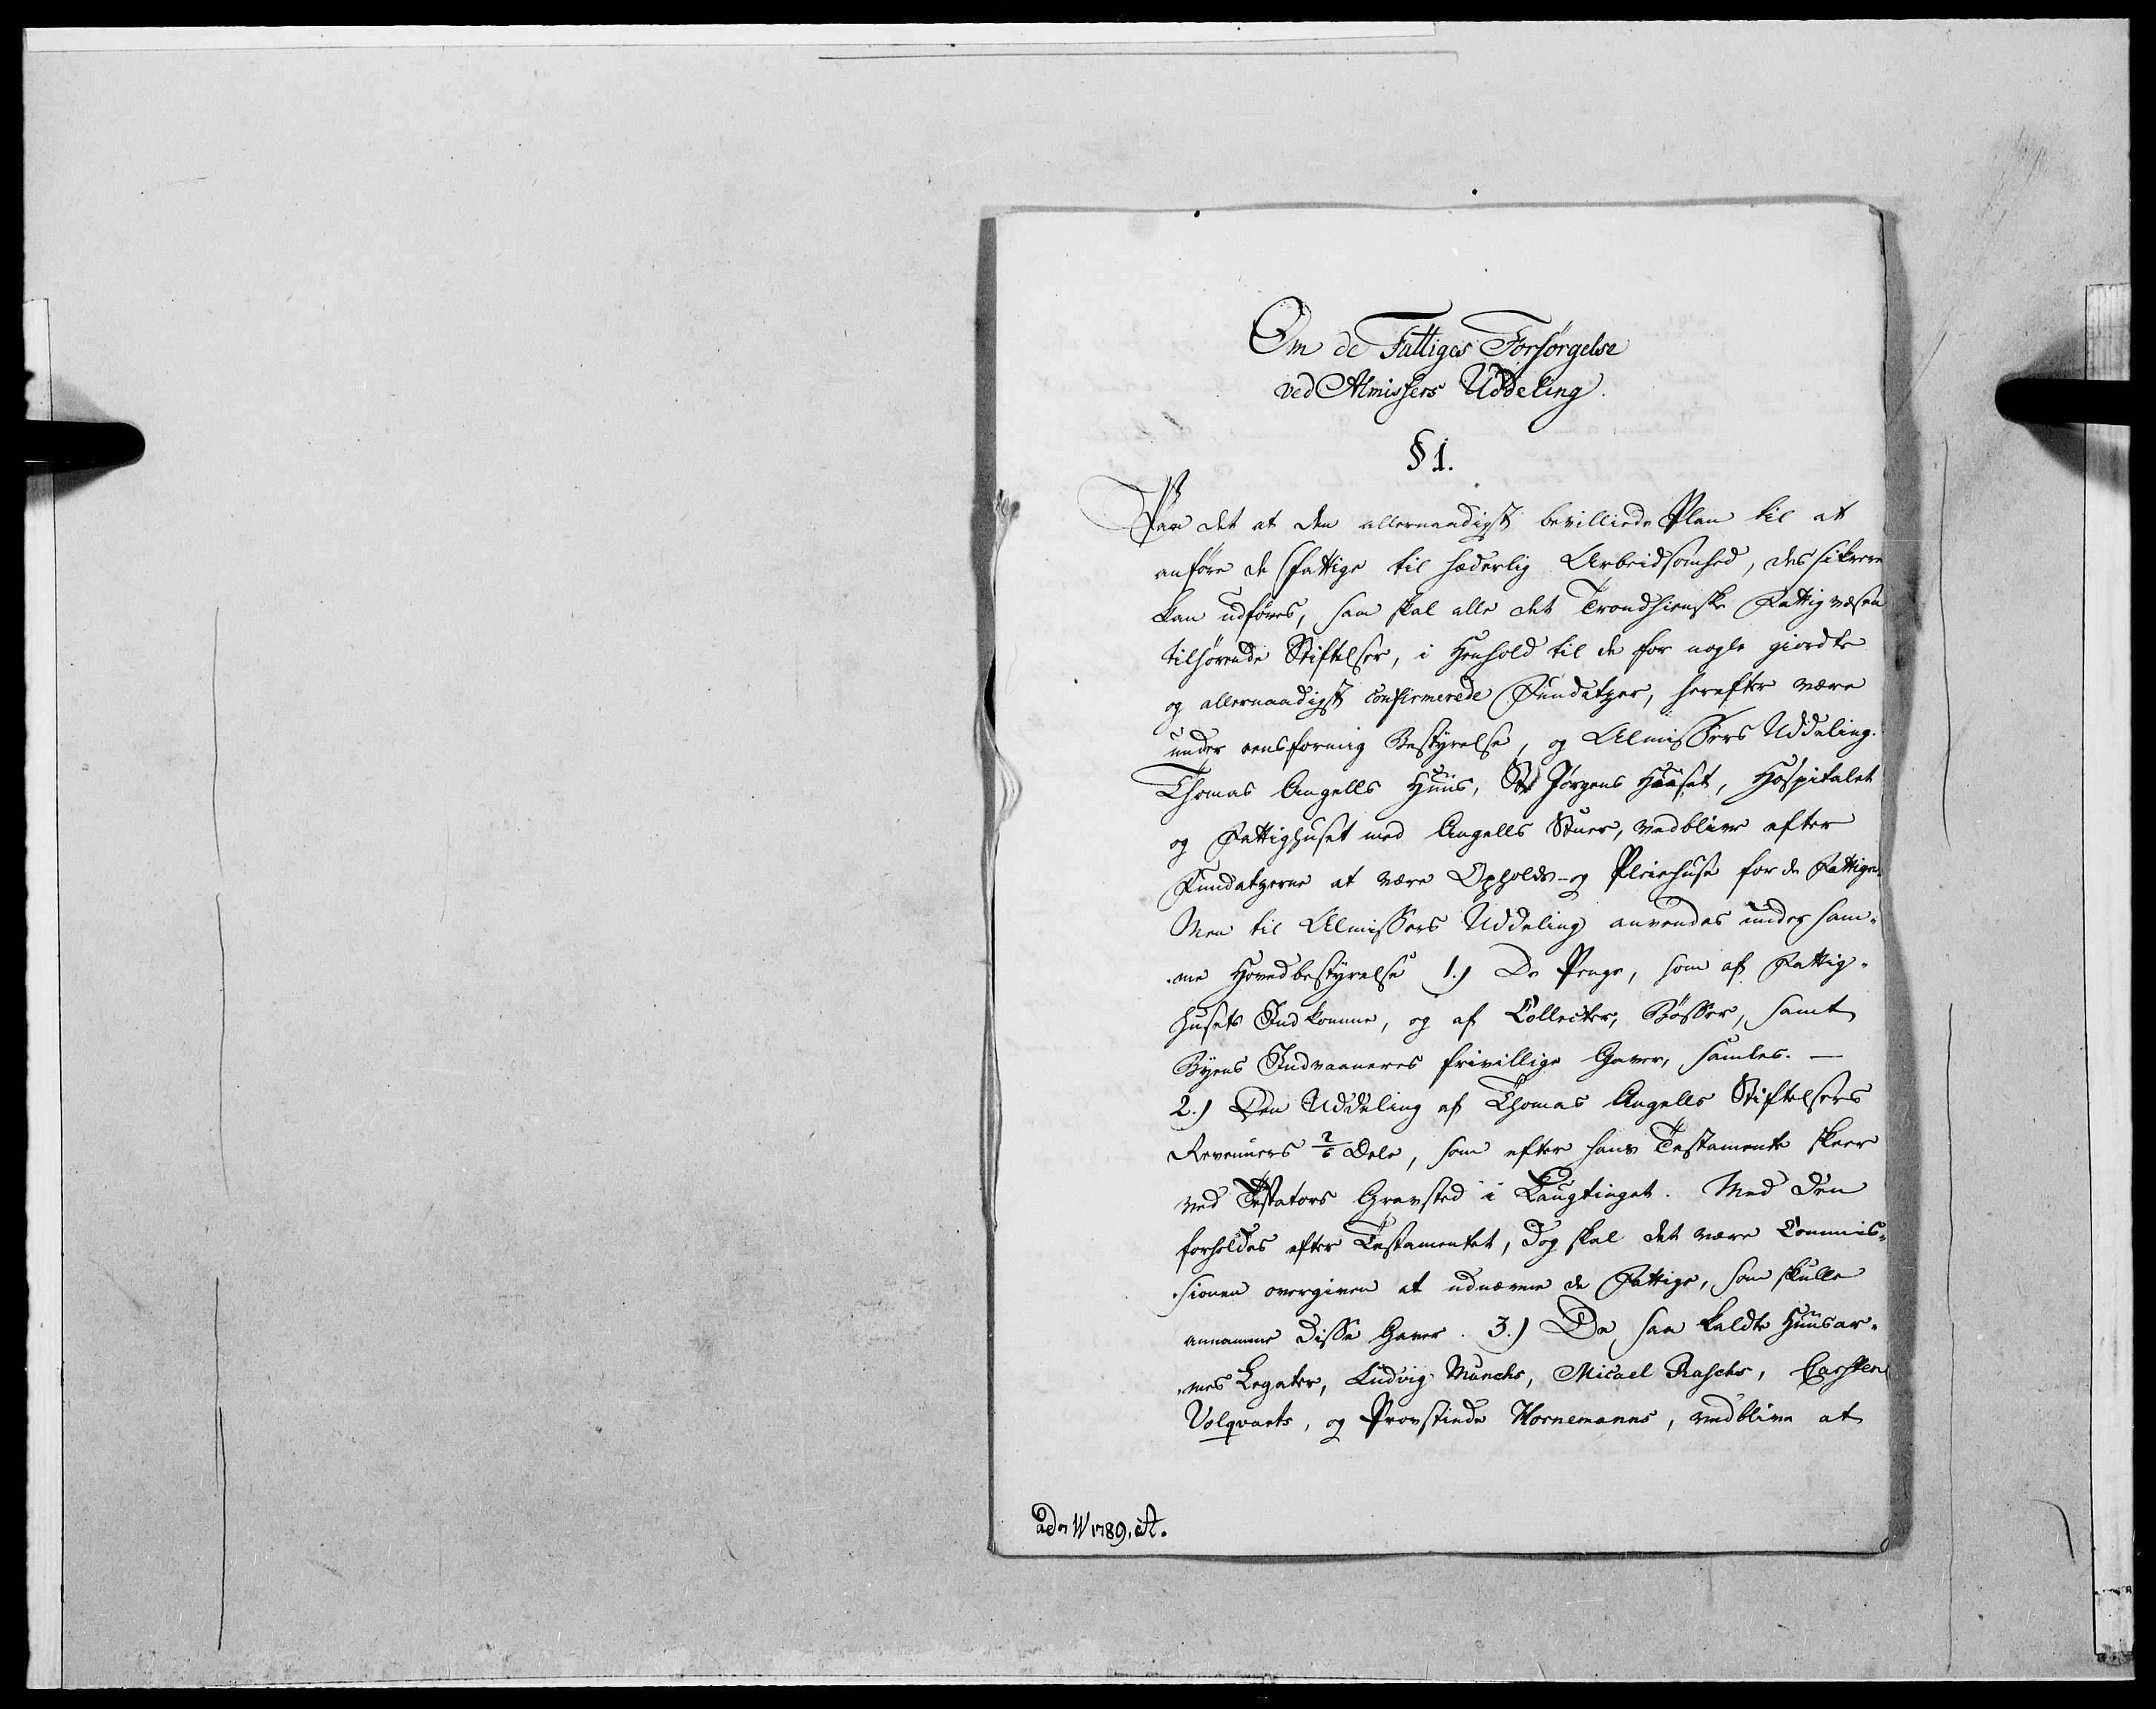 Om de Fattiges Forsørgelse
ved Almissers Uddeling.
§ 1.
Paa det at den allernaadigst bevilliede Plan til at
anføre de Fattige til hæderlig Arbeidsomhed, des sikrere
kan udføres, saa skal alle det Trondhiemske Fattigvæsen
tilhørende Stiftelser, i Henhold til de for nogle giordte
og allernaadigst confirmerede Fundatzer, herefter være
under eensformig Bestyrelse, og Almissers Uddeling.
Thomas Angells Huus, St Jørgens Huuset, Hospitalet
og Fattighuset med Angells Stuer, vedblive efter
Fundatzerne at være Opholds- og Pleiehuse for de Fattige.
Men til Almissers Uddeling anvendes under sam-
-me Hovedbestyrelse 1.) De Penge, som af Fattig-
husets Indkomme, og af Collecter, Bøsser, samt
Byens Indvaaneres frivillige Gaver, samles. —
2.) Den Uddeling af Thomas Angells Stiftelsers
Revenuers 2/6 Dele, som efter hans Testamente skeer
ved Testators Gravsted i Laugtinget. Med den
forholdes efter Testamentet, dog skal det være Commis-
-sionen overgiven at udnævne de Fattige, som skulle
annamme disse Gaver. 3.) De saa kaldte Huusar-
-mes Legater, Ludvig Munchs, Micael Raschs, Carsten
Volqvarts, og Provstinde Hornemanns, vedblive at
1789, A.